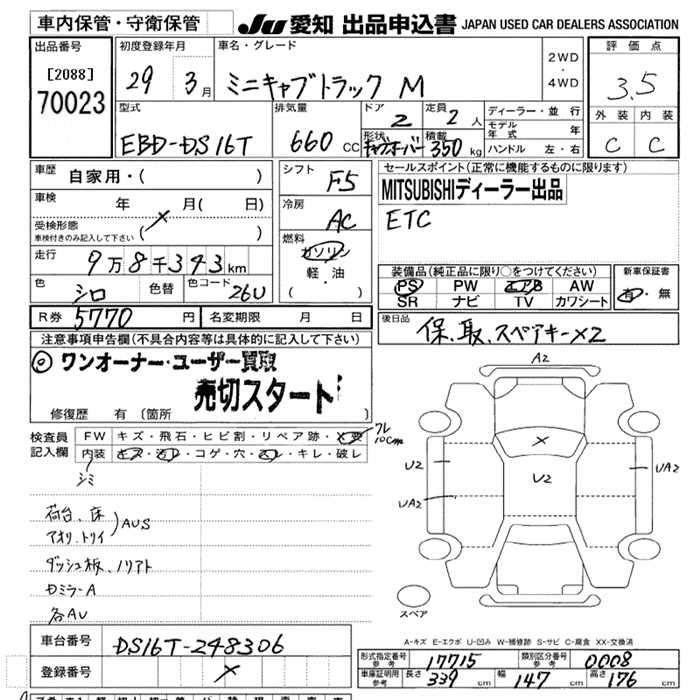 車内保管・守衛保管
JU 愛知 出品申込書 JAPAN USED CAR DEALERS ASSOCIATION
出品番号
[2088]
70023
初度登録年月
29 3月
車名・グレード
ミニキャブトラック M
2WD
・
4WD
評価点
3.5
外装 内装
C C
型式
EBD-DS16T
排気量
660 CC
ドア
2
定員
2人
形状
積載
350 kg
ディーラー・並行
モデル年式 年
ハンドル 左・右
車歴
自家用・( )
車検
年 月( 日)
受検形態
車検付きのみ記入して下さい ( )
走行
9万8千343km
色
シロ
色替
色コード
26U
シフト
F5
冷房
AC
燃料
ガソリン
軽・油
( )
セールスポイント(正常に機能するものに限ります)
MITSUBISHIディーラー出品
ETC
装備品(純正品に限り○をつけてください)
PS PW エアB AW
SR ナビ TV カワシート
新車保証書
有・無
R券 5770 円
名変期限 月 日
後日品
保、取、スペアキー×2
注意事項申告欄(不具合内容等は具体的に記入して下さい)
◎ ワンオーナー・ユーザー買取
売切スタート!
修復歴 有(箇所 )
検査員
記入欄
FW キズ・飛石・ヒビ割・リペア跡・×要
フレ10cm
内装 キズ・汚レ・コゲ・穴・スレ・キレ・破レ
シミ
荷台、床
アオリ、トリイ
AUS
ダッシュ板、ノリアト
各AU
A2
×
U2
U2
UA2
UA2
スペア
A-キズ E-エクボ U-凹み W-補修跡 S-サビ C-腐食 XX-交換済
車台番号
DS16T-248306
登録番号
×
形式指定番号
参考
17715
類別区分番号
参考
0008
車庫証明用
参考
長さ 339 cm 幅 147 cm 高さ 176 cm